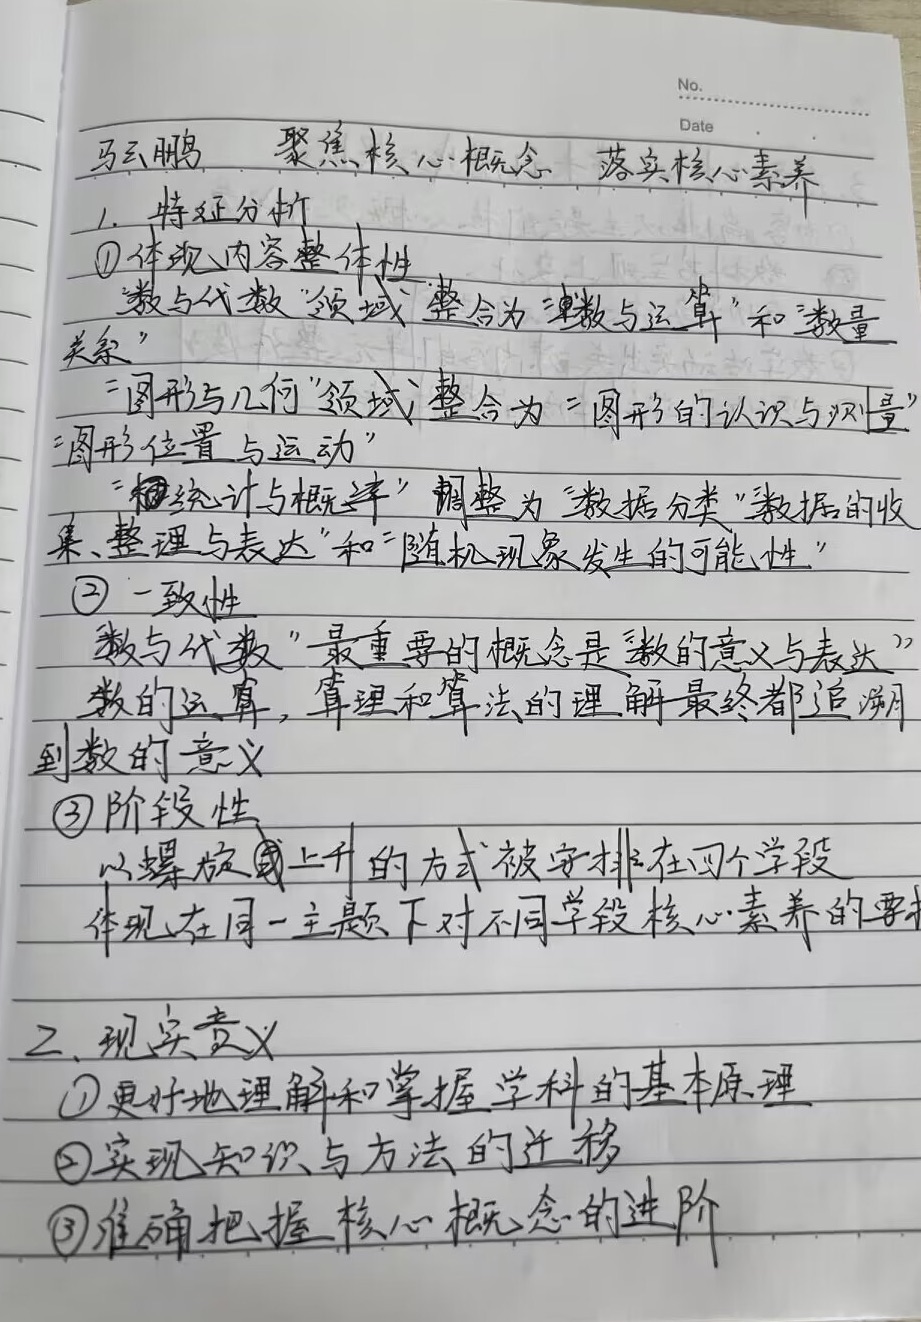 No.
Date
马云鹏 聚焦核心概念 落实核心素养
1. 特征分析
①体现内容整体性
"数与代数"领域 整合为"数与运算"和"数量
关系"
"图形与几何"领域 整合为"图形的认识与测量"
"图形位置与运动"
"统计与概率" 调整为"数据分类""数据的收
集、整理与表达"和"随机现象发生的可能性"
② 一致性
数与代数"最重要的概念是"数的意义与表达"
数的运算,算理和算法的理解最终都追溯
到数的意义
③阶段性
以螺旋上升的方式被安排在四个学段
体现在同一主题下对不同学段核心素养的要
2、现实意义
①更好地理解和掌握学科的基本原理
②实现知识与方法的迁移
③准确把握核心概念的进阶